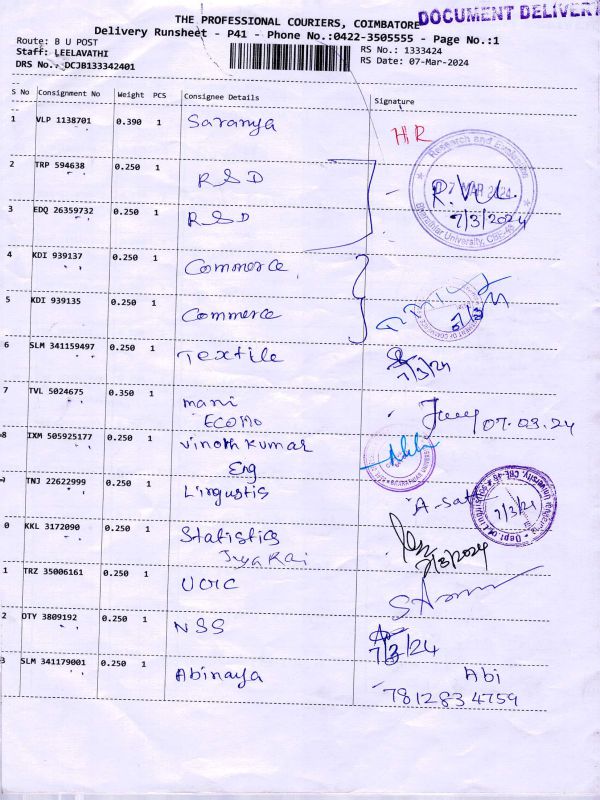 THE PROFESSIONAL COURIERS, COIMBATORE
DOCUMENT DELIVERY
Delivery Runsheet - P41 - Phone No.:0422-3505555 - Page No.:1
Route: B U POST
RS No.: 1333424
Staff: LEELAVATHI
RS Date: 07-Mar-2024
DRS No.: DCJB133342401
S No Consignment No Weight PCS Consignee Details Signature
1 VLP 1138701 0.390 1 Saranya HR
2 TRP 594638 0.250 1 RSD
Research and Evaluation
07 MAR 2024
Bharathiar University, CBE-46
7/3/2024
3 EDQ 26359732 0.250 1 RSD
4 KDI 939137 0.250 1 Commerce
5 KDI 939135 0.250 1 Commerce
6 SLM 341159497 0.250 1 Textile 7/3/24
7 TVL 5024675 0.350 1 mani
ECOMO 07.03.24
8 IXM 505925177 0.250 1 Vinoth Kumar
Eng
9 TNJ 22622999 0.250 1 Lingustis A-Sath
7/3/24
0 KKL 3172090 0.250 1 Statistics
Jyakai 7/3/2024
1 TRZ 35006161 0.250 1 UCIC
2 DTY 3809192 0.250 1 NSS 7/3/24
3 SLM 341179001 0.250 1 Abinaya Abi
7812834759